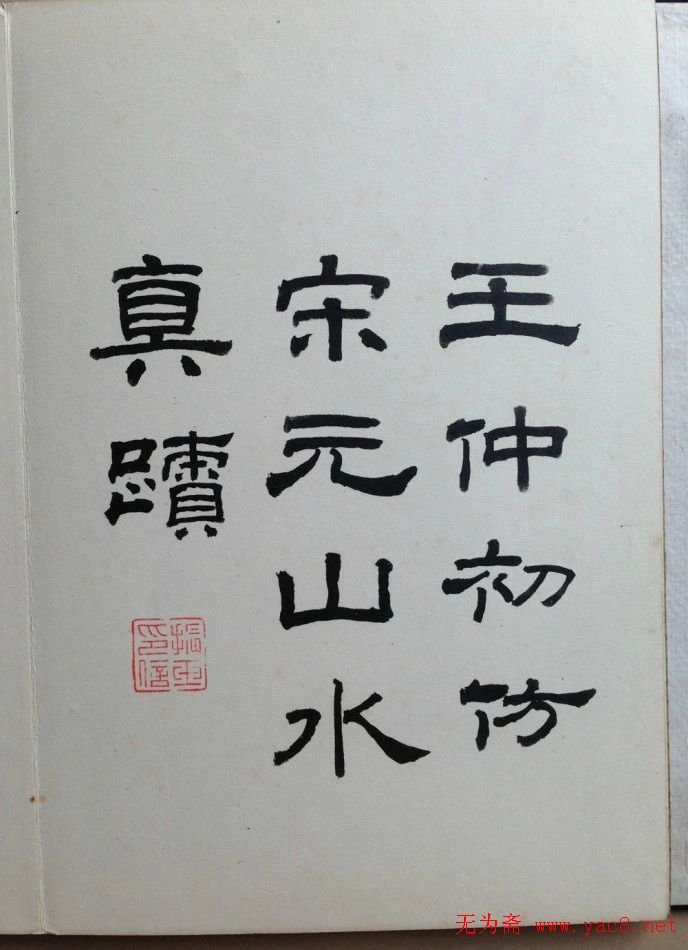 王仲初仿
宋元山水
真蹟
无为斋 www.yac8.net